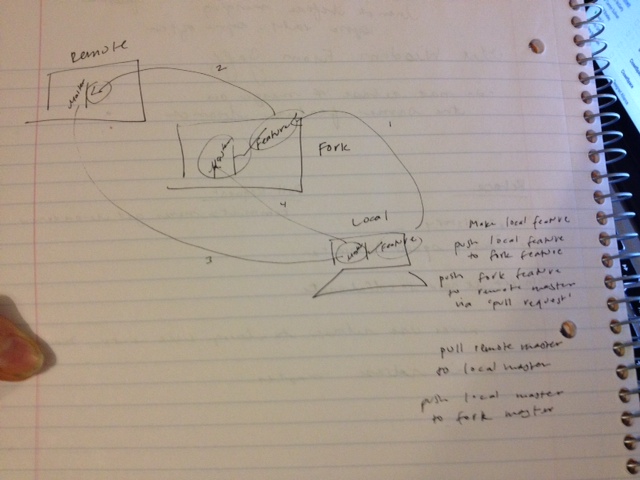 Remote
2
master
1
Feature
master
Fork
4
Local
master
Feature
3
Make local feature
push local feature
to fork feature
push fork feature
to remote master
via "pull request"
pull remote master
to local master
push local master
to fork master